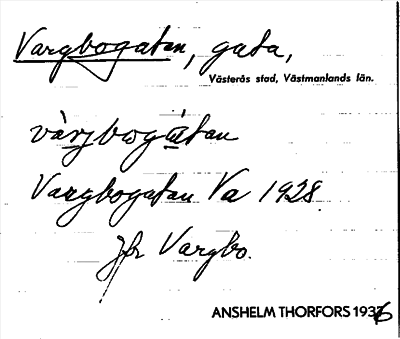 Vargbogatan, gata,
Västerås stad, Västmanlands län.
vàrgbωgɑ̀tan
Vargbogatan Va 1928.
Jfr Vargbo.
ANSHELM THORFORS 1936